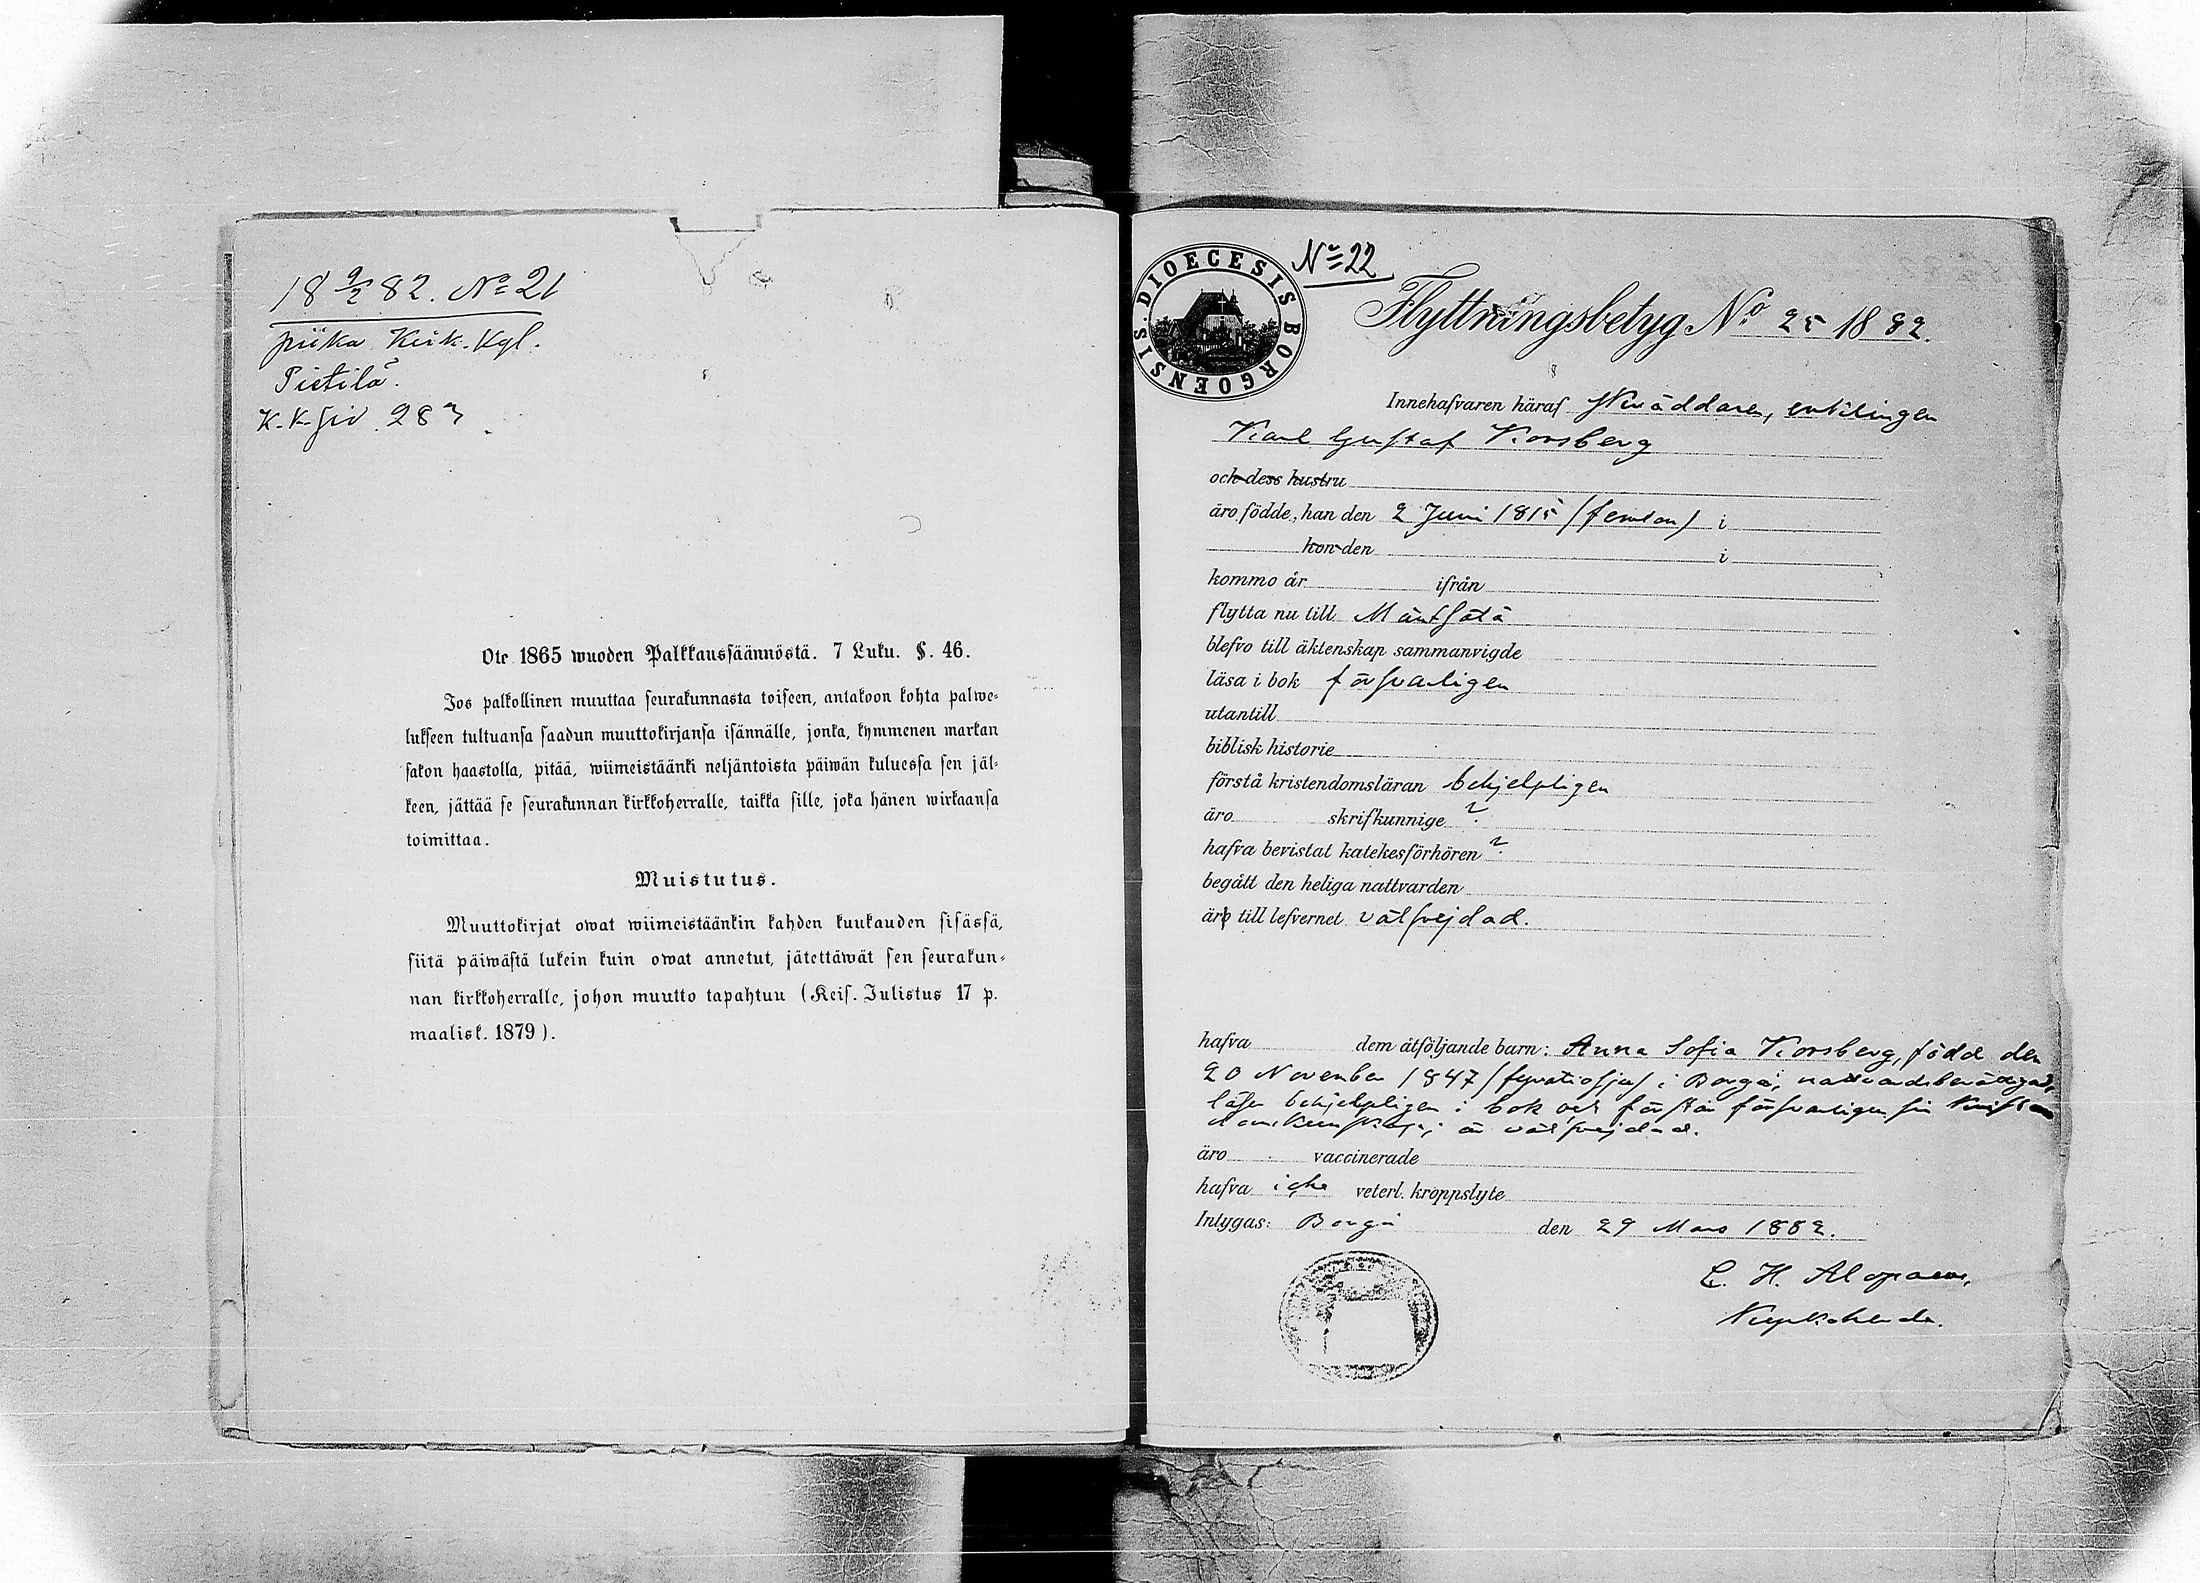 18 9/2 82. No 21
piika Kirk. Kyl.
Pietilä.
K.K. siv 283
Ote 1865 wuoden Palkkaussäännöstä. 7 Luku. §. 46.
Jos palkollinen muuttaa seurakunnasta toiseen, antakoon kohta palwe-
lukseen tultuansa saadun muuttokirjansa isännälle, jonka, kymmenen markan
sakon haastolla, pitää, wiimeistäänki neljäntoista päiwän kuluessa sen jäl-
keen, jättää se seurakunnan kirkkoherralle, taikka sille, joka hänen wirkaansa
toimittaa.
Muistutus.
Muuttokirjat owat wiimeistäänkin kahden kuukauden sisässä,
siitä päiwästä lukein kuin owat annetut, jätettäwät sen seurakun-
nan kirkkoherralle, johon muutto tapahtuu (Keis. Julistus 17 p.
maalisk. 1879).
DIOECESIS BORGOENSIS.
No 22
Flyttningsbetyg No. 25 1882.
Innehafvaren häraf Skräddaren, enklingen
Karl Gustaf Korsberg
och dess hustru
äro födde, han den 2 Juni 1815 (femton) i
hon den i
kommo år ifrån
flytta nu till Mäntsälä
blefvo till äktenskap sammanvigde
läsa i bok försvarligen
utantill
biblisk historie
förstå kristendomsläran behjelpligen
äro skrifkunnige ?
hafva bevistat katekesförhören ?
begått den heliga nattvarden
är till lefvernet välfrejdad.
hafva dem åtföljande barn: Anna Sofia Korsberg, född den
20 November 1847 (fyratiosju) i Borgå, nattvardsberättigad,
läser behjelpligen i bok och förstår försvarligen sin Kristen
domskunskap; är välfrejdad.
äro vaccinerade
hafva icke veterl. kroppslyte
Intygas: Borgå den 29 Mars 1882.
C. H. Alopaeus,
Kyrkoherde.